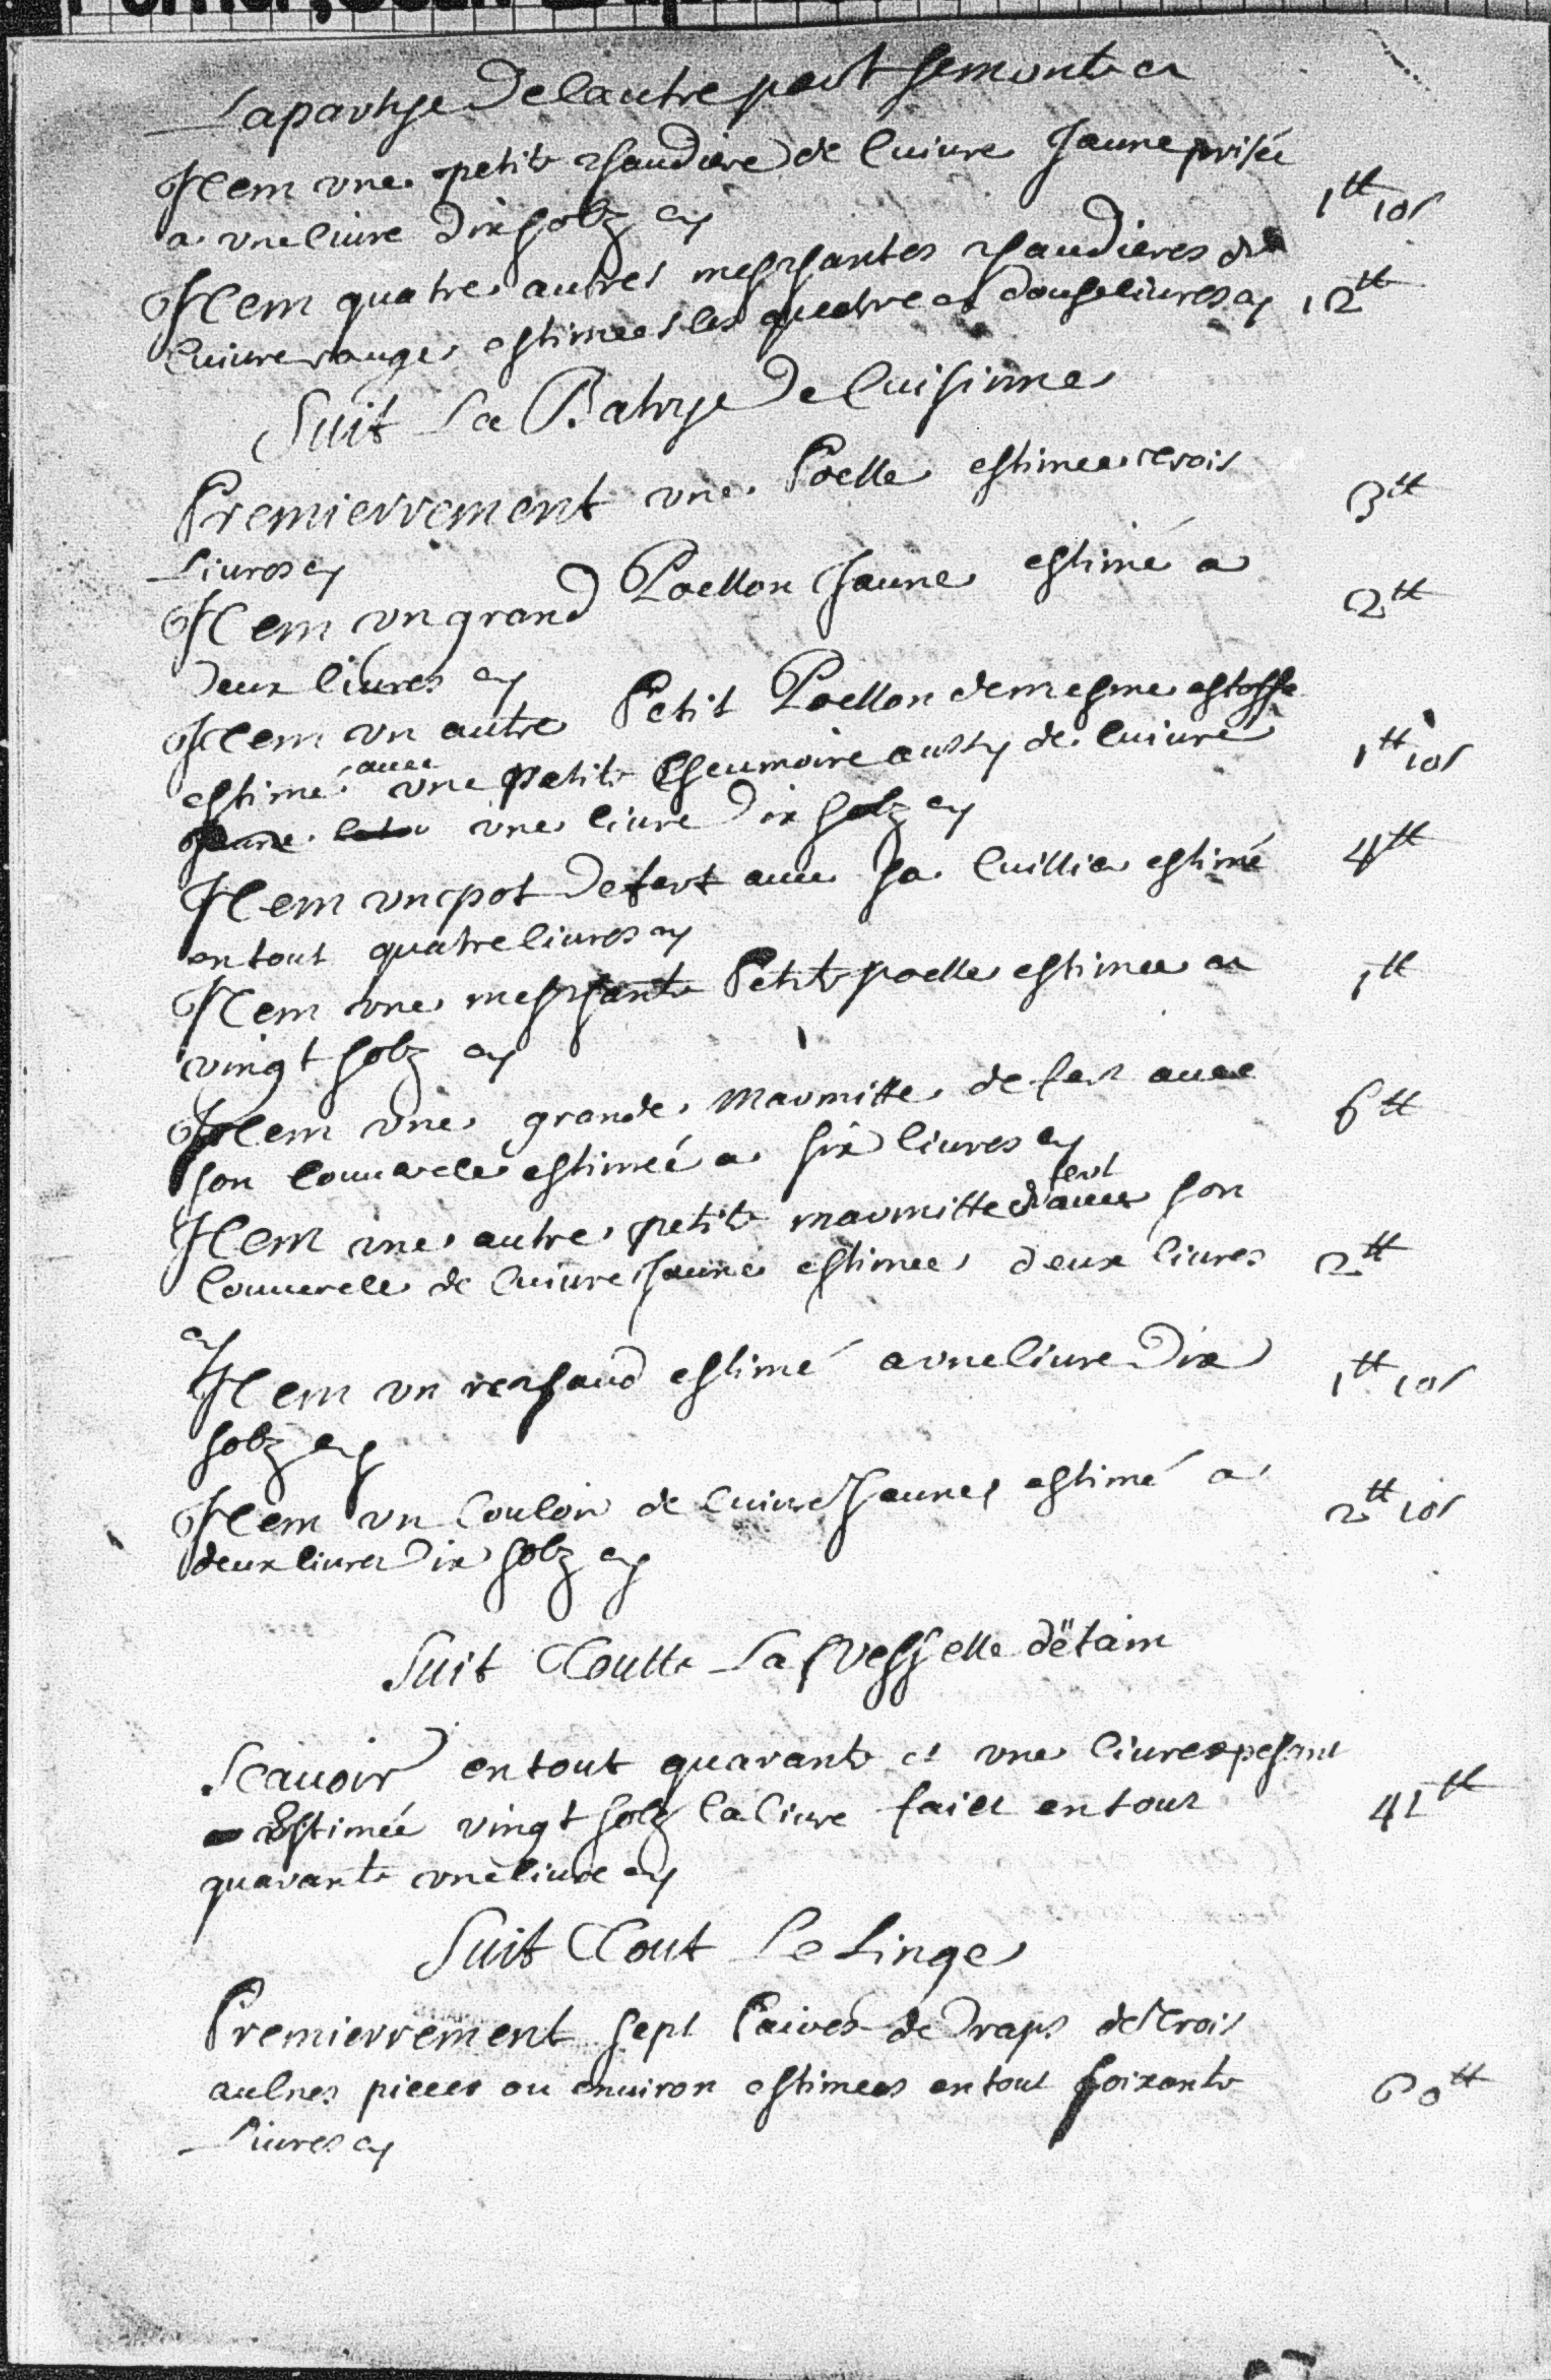 La partye de lautre part se monte a
Item une petite chaudiere de cuivre Jaune prisée
a une livre dix solz cy 1tt 10s
Item quatre autres meschantes chaudieres de
cuivre rouge estimees les quatre a douse livres cy 12tt
Suit La Batrye de Cuisinne
Premierrement une Poelle estimee trois 3tt
Livres cy
Item un grand Poellon Jaune estimé a 2tt
deux livres cy
Item un autre Petit Poellon de mesme estoffe
estimé avec une petite Escumoire aussy de cuivre 1tt 10s
Jaune une livre dix solz cy
Item un pot de fert avec sa Cuillier estimé 4tt
en tout quatre livres cy
Item une meschante Petite poelle estimee a 1tt
vingt solz cy
Item une grande Marmitte de fert avec 6tt
son couvercle estimeé a six livres cy
Item une autre petite marmitte de fert avec son
Couvercle de Cuivre Jaune estimee deux livres 2tt
cy
Item un rechaud estimé a une livre Dix 1tt 10s
solz cy
Item un Couloir de cuivre Jaune estimé a 2tt 10s
deux livres Dix solz cy
Suit Toutte La Vesselle dëtain
Scavoir en tout quarante et une livres pesant
Estimée vingt solz la livre faict en tout 41tt
quarante une livre cy
Suit Tout Le Linge
Premierrement sept Paires de Draps de trois
aulnes pieces ou environ estimees en tout soixante 60tt
Livres cy